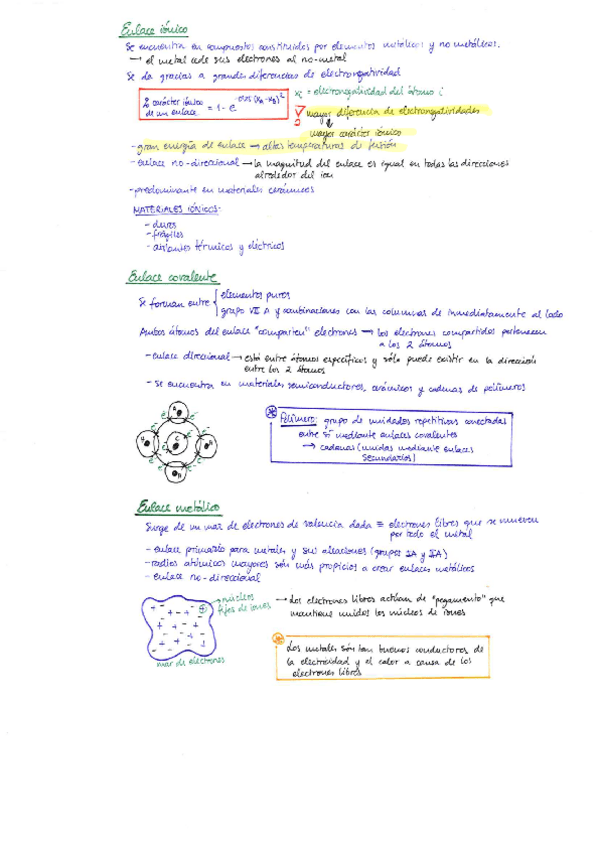 Enlace iónico
Se encuentra en compuestos constituidos por elementos metálicos y no metálicos.
→ el metal cede sus electrones al no-metal
Se da gracias a grandes diferencias de electronegatividad
% carácter iónico de un enlace = 1 - e^-0'25 (xA - xB)^2
xi = electronegatividad del átomo i
mayor diferencia de electronegatividades
mayor carácter iónico
- gran energía de enlace → altas temperaturas de fusión
- enlace no-direccional → la magnitud del enlace es igual en todas las direcciones
alrededor del ion
- predominante en materiales cerámicos
MATERIALES IÓNICOS:
- duros
- frágiles
- aislantes térmicos y eléctricos
Enlace covalente
Se forman entre
elementos puros
grupo VII A y combinaciones con las columnas de inmediatamente al lado
Ambos átomos del enlace "comparten" electrones → los electrones compartidos pertenecen
a los 2 átomos
- enlace direccional → está entre átomos específicos y sólo puede existir en la dirección
entre los 2 átomos
- se encuentra en materiales semiconductores, cerámicos y cadenas de polímeros
H
H C H
H
Polímero: grupo de unidades repetitivas conectadas
entre sí mediante enlaces covalentes
→ cadenas (unidas mediante enlaces
secundarios)
Enlace metálico
Surge de un mar de electrones de valencia dada = electrones libres que se mueven
por todo el metal
- enlace primario para metales y sus aleaciones (grupos IA y IIA)
- radios atómicos mayores son más propicios a crear enlaces metálicos
- enlace no-direccional
núcleos
fijos de iones
mar de electrones
→ Los electrones libres actúan de "pegamento" que
mantiene unidos los núcleos de iones
Los metales son tan buenos conductores de
la electricidad y el calor a causa de los
electrones libres